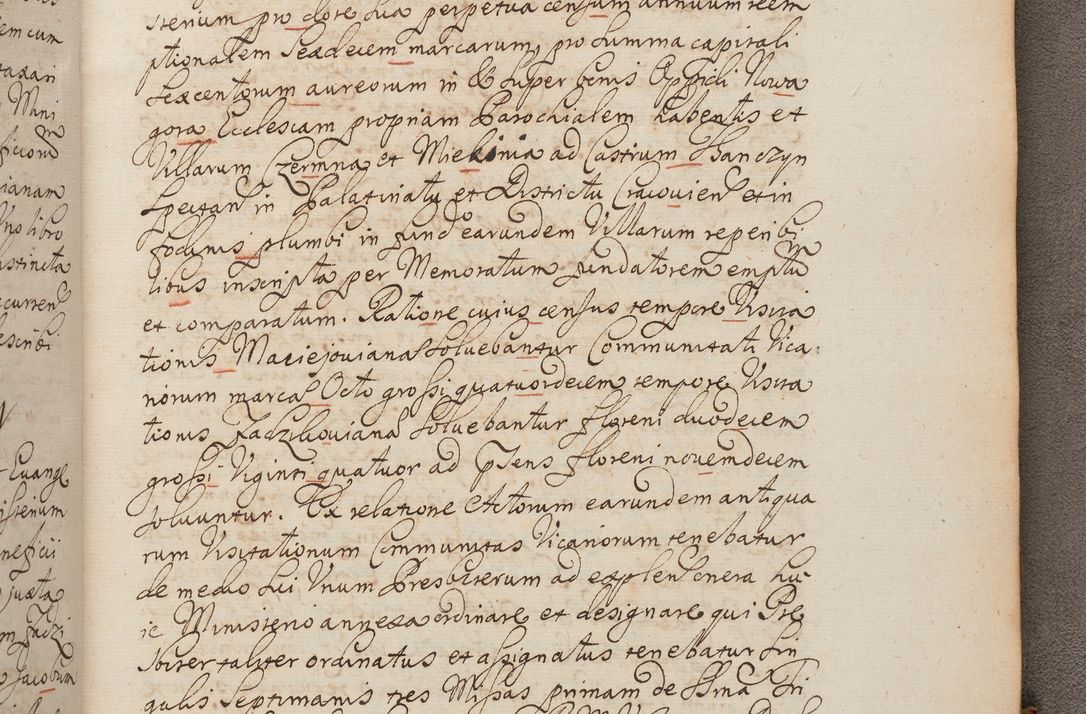 sterium pro dote sua perpetua censum annuum reem
ptionalem sexdecem marcarum, pro summa capitali
sexcentorum aureorum in & super bonis Oppidi Nowa
gora Ecclesiam propriam Parochialem habentis et
Villarum Czermna et Miekinia ad Castrum Thanczyn
spectan in Palatinatu et Districtu Cracovien et in
fodinis plumbi in fund earundem Villarum reperibi
libus inscripta per Memoratum fundatorem emptum
et comparatum. Ratione cuius census tempore Visita
tionis Maciejoviana solvebantur Communitati Vica
riorum marca Octo grossi quatuordecem tempore Visita
tionis Zadzikoviana solvebantur floreni duodecem
grossi Viginti quatuor ad psens floreni novemdecem
solvuntur. Ex relatione Actorum earundem antiqua
rum Visitationum Communitas Vicariorum tenebatur
de medio sui Unum Presbiterum ad explen onera hu
ic Ministerio annexa ordinare et designare qui Pre
sbiter taliter ordinatus et assignatus tenebatur sin
gulis septimanis tres Missas primam de Ssma Tri
em cum
taxari
Mini
ficiorum
ianam
Uno libro
istincta
ecurren
escribi
Evangel
isterium
neficii
juxta
m Zadzi
Jacobum